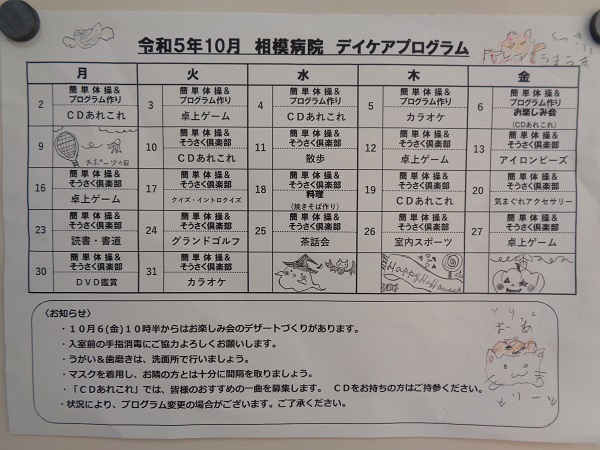 令和5年10月 相模病院 デイケアプログラム
月 火 水 木 金
2 簡単体操&プログラム作り CDあれこれ
3 簡単体操&プログラム作り 卓上ゲーム
4 簡単体操&プログラム作り CDあれこれ
5 簡単体操&プログラム作り カラオケ
6 簡単体操&プログラム作り お楽しみ会 (CDあれこれ)
9 スポーツの日
10 簡単体操&そうさく倶楽部 CDあれこれ
11 簡単体操&そうさく倶楽部 散歩
12 簡単体操&そうさく倶楽部 卓上ゲーム
13 簡単体操&そうさく倶楽部 アイロンビーズ
16 簡単体操&そうさく倶楽部 卓上ゲーム
17 簡単体操&そうさく倶楽部 クイズ・イントロクイズ
18 簡単体操&そうさく倶楽部 料理 (焼きそば作り)
19 簡単体操&そうさく倶楽部 CDあれこれ
20 簡単体操&そうさく倶楽部 気まぐれアクセサリー
23 簡単体操&そうさく倶楽部 読書・書道
24 簡単体操&そうさく倶楽部 グランドゴルフ
25 簡単体操&そうさく倶楽部 茶話会
26 簡単体操&そうさく倶楽部 室内スポーツ
27 簡単体操&そうさく倶楽部 卓上ゲーム
30 簡単体操&そうさく倶楽部 DVD鑑賞
31 簡単体操&そうさく倶楽部 カラオケ
Happy Halloween
〈お知らせ〉
・10月6(金)10時半からはお楽しみ会のデザートづくりがあります。
・入室前の手指消毒にご協力よろしくお願いします。
・うがい&歯磨きは、洗面所で行いましょう。
・マスクを着用し、お隣の方とは十分に間隔を取りましょう。
・「CDあれこれ」では、皆様のおすすめの一曲を募集します。 CDをお持ちの方はご持参ください。
・状況により、プログラム変更の場合がございます。ご了承ください。